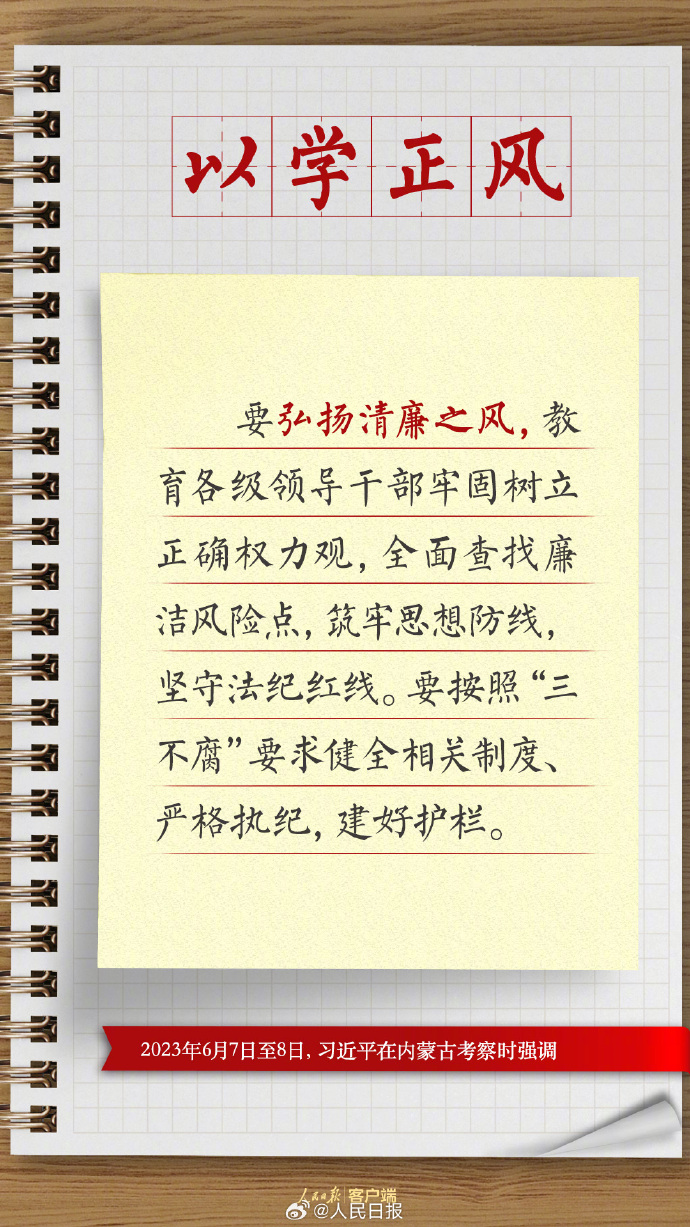 以学正风
要弘扬清廉之风，教
育各级领导干部牢固树立
正确权力观，全面查找廉
洁风险点，筑牢思想防线，
坚守法纪红线。要按照“三
不腐”要求健全相关制度、
严格执纪，建好护栏。
2023年6月7日至8日，习近平在内蒙古考察时强调
人民日报 客户端
@人民日报